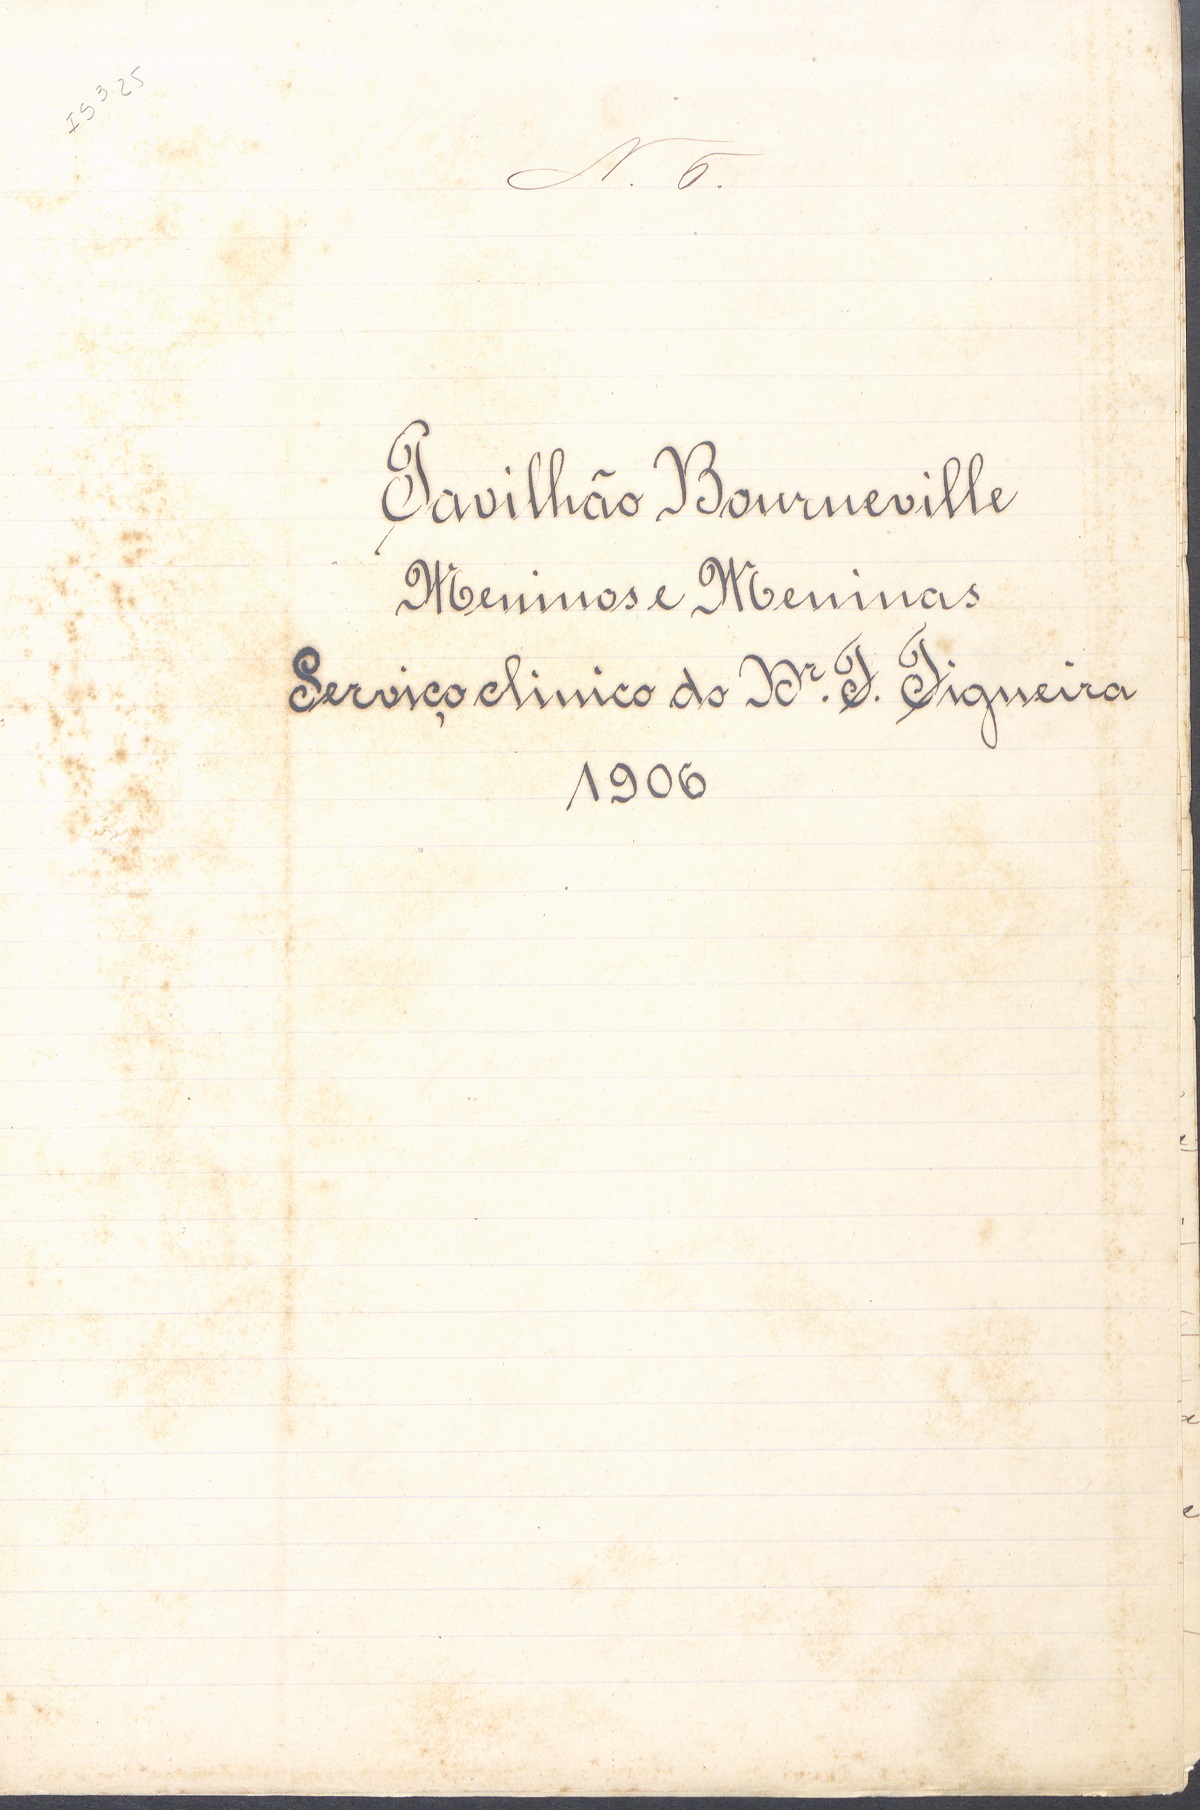 IS³ 25
N. 6.
Pavilhão Bourneville
Meninos e Meninas
Serviço clinico do Dr. F. Figueira
1906